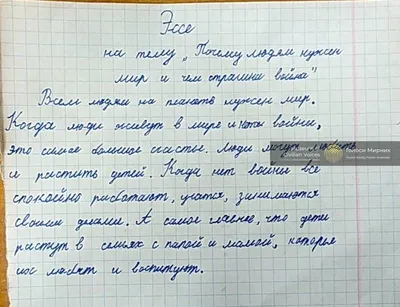 Эссе
на тему „Почему людям нужен
мир и чем страшна война"
Всем людям на планете нужен мир.
Когда люди живут в мире и нет войны,
это самое большое счастье. Люди могут любить
и растить детей. Когда нет войны все
спокойно работают, учатся, занимаются
своими делами. А самое главное, что дети
растут в семьях с папой и мамой, которые
их любят и воспитуют.
Civilian Voices
Голоси Мирних